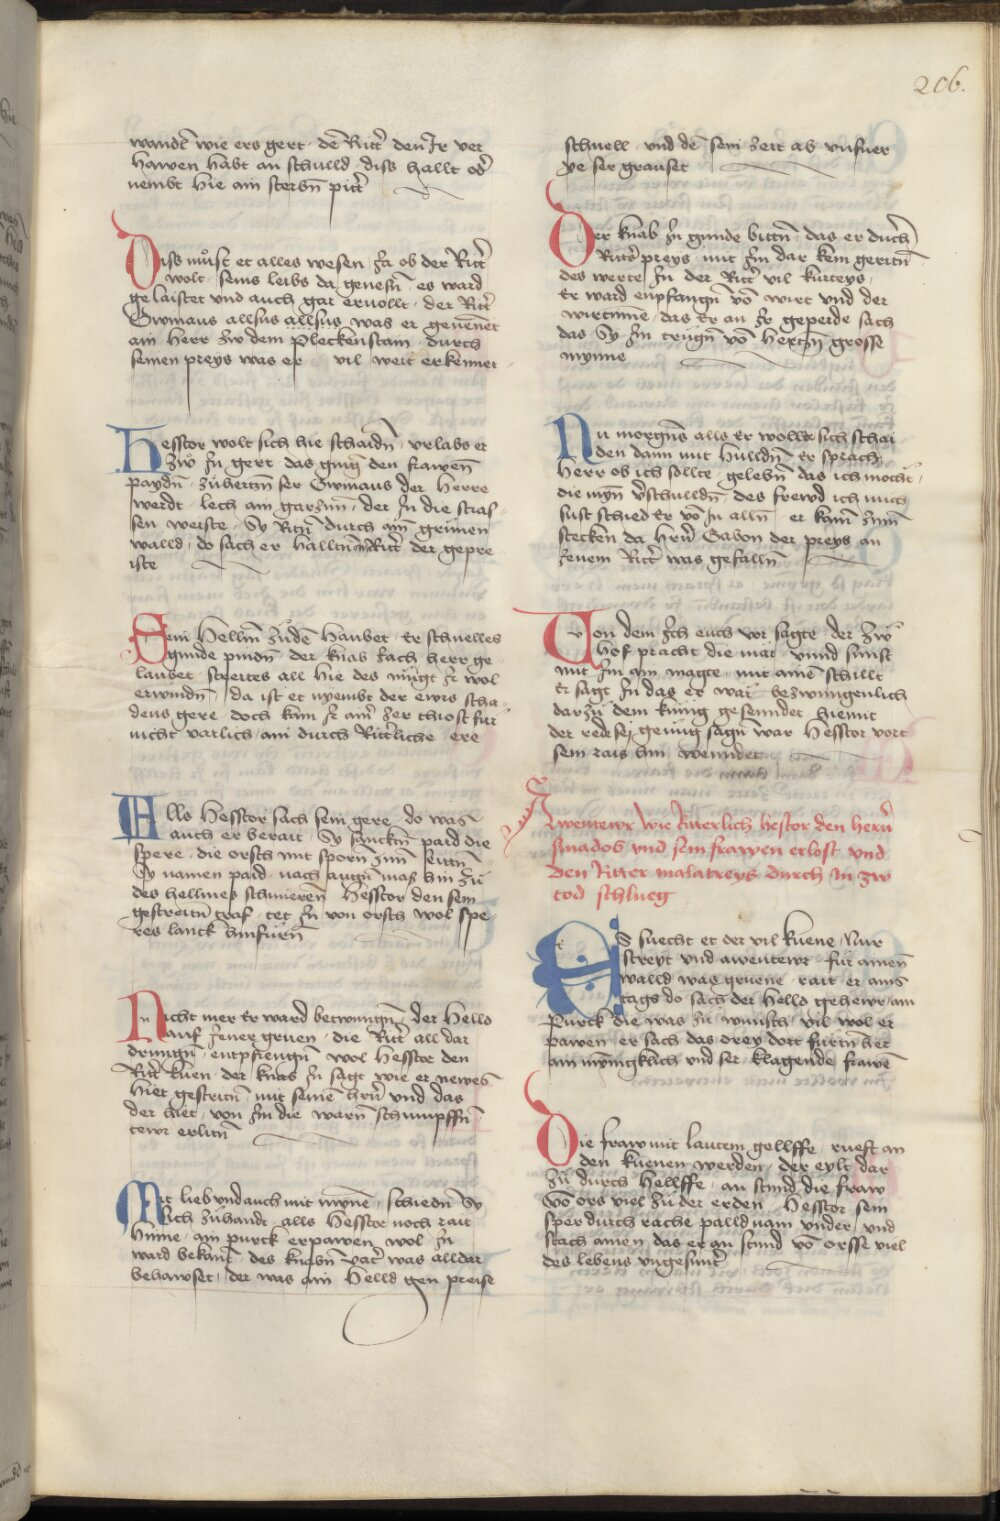 206.
wandl̄ wie ers gert · dē Ritt̄ den Ir ver
hawen habt an schulld · diss hallt od̄
nembt hie ain sterbn̄ pitt̄
Diss muͦst er alles wesen · Ja ob der Ritt̄
wolt · seins leibs da genesn̄ · es ward
gelaistet und auch gar ervollt · der Ritt̄
Gwinaus allsus allsus was er genennet
ain Herr zw dem Pleckenstain · durch
seinen preys was er vil weit erkennet
Hesstor wolt sich hie schaidn̄ · urlabs er
zw̄ In gert das ging den frawen
paydn̄ · zuhertzn̄ ser Gwinaus der Herre
werdt · lech am garzun̄ · der In die stras=
sen weiste · Sy Ritn̄ durch ain̄ gruͤnen
walld · do sach er halltn̄ ain̄ Ritt̄ der gepre
iste
Sein Hellm̄ zudē haubet · Er schnelles
gunde pindn̄ · der knab Jach herr ge
laubet · Streites all hie des muͤgt Ir wol
erwindn̄ · da ist er nyembt der ewrs scha=
dens gere · doch kum Ir am̄ Zer thiost fur
nicht varlich ain durch Ritt̄liche ere
Alls Hesstor sach sein gere · do was
auch er berait · Sy sanckn̄ paid die
spere · die orsch mit sporn̄ zum Rittn̄
Sy namen paid · nach augn̄ mas hin zu
des hellmes schnieren̄ Hesstor den sein
gestreitn̄ traf · tet In von orsch wol spe=
res lanck hinfurn̄
Nicht mer Er ward betwungn̄ der Hello
auf Jener gruen · die Ritt̄ all dar
drungn̄ · entpfiengn̄ wol Hesstor den
Ritt̄ kuen · der knab In sagt wie er newes
hiet gestritn̄ mit seinē hern̄ und das
der hiet · von Im die warn̄ schumpffn̄
tewr erlitn̄
Mit lieb und auch mit mynnē · schiedn̄ Sy
sich zuhandt · alls Hesstor noch rait
hinne · ain purck erpawen wol In
ward bekant̄ des knabn̄ vat̄ was alldar
behawset · der was ain Helld gen preise
schnell · und dē sein Zeit ab unfuer
ye ser grauset
Der knab In gunde bittn̄ · das er durch
Ritt̄s preys · mit Im dar kem geritn̄
des werte In der Ritt̄ vil kurteys ·
Er ward enpfangn̄ vō wirt und der
wirtinne · das Er an Ir geperde sach
das Sy Im trugn̄ vō Hertzn̄ grosse
mynne
Nu morgns̄ alls Er wollt sich schai
den dann mit hulldn̄ Er sprach
Herr ob ich sollte · gelebn̄ das ich mocht̄ ·
die myn̄ v̄schulldn̄ · des frewd ich mich
sust schied Er vō In alln̄ · er kam zum
stecken da hern̄ Gabon der preys an
Jenem Ritt̄ was gefalln̄
Von dem Ich euch vor sagte · der zw
hof pracht die mar · unnd sunst
mit Im ain magte · mit ainē schillt
Er sagt In das er war bezwungenlich
darzu dem kunig gesenndet hiemit
der rede sey genug sagn̄ war Hesstor vort
sein rais hin wenndet
Awentewr wie Ritterlich hestor den hern̄
sinados und sein frawen erlost und
den Ritter malatreys durch In zw
tod schlueg
Es suecht er der vil kuene · Nur
streyt und awentewr · fur ainen̄
walld was gruene · rait er ains
tags do sach der Hello gehewr · ain
Purck die was zu wunsch · vil wol er
pawen · er sach das drey dort furtn̄ her
ain mynnigklich und ser klagende frawē
Die fraw mit lautem gellffe · rueft an
den kuenen werden · der eylt dar
zu durch hellffe · an stund die fraw
vō ors viel zu der erden · Hesstor sein
sper durch rache palld nam under · und
stach ainen das er an stund vō orsse viel
des lebens ungesunt̄